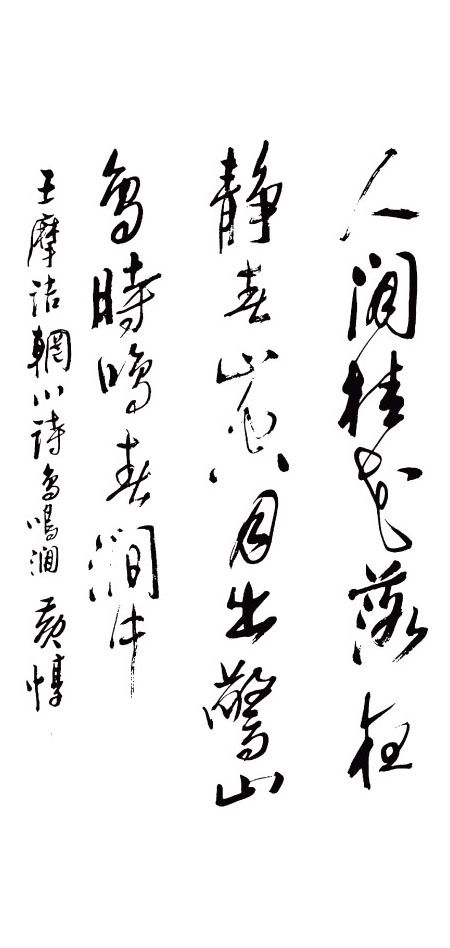 人閒桂花落夜
静春山空月出驚山
鳥時鳴春澗中
王摩詰輞川詩鳥鳴澗 黃惇